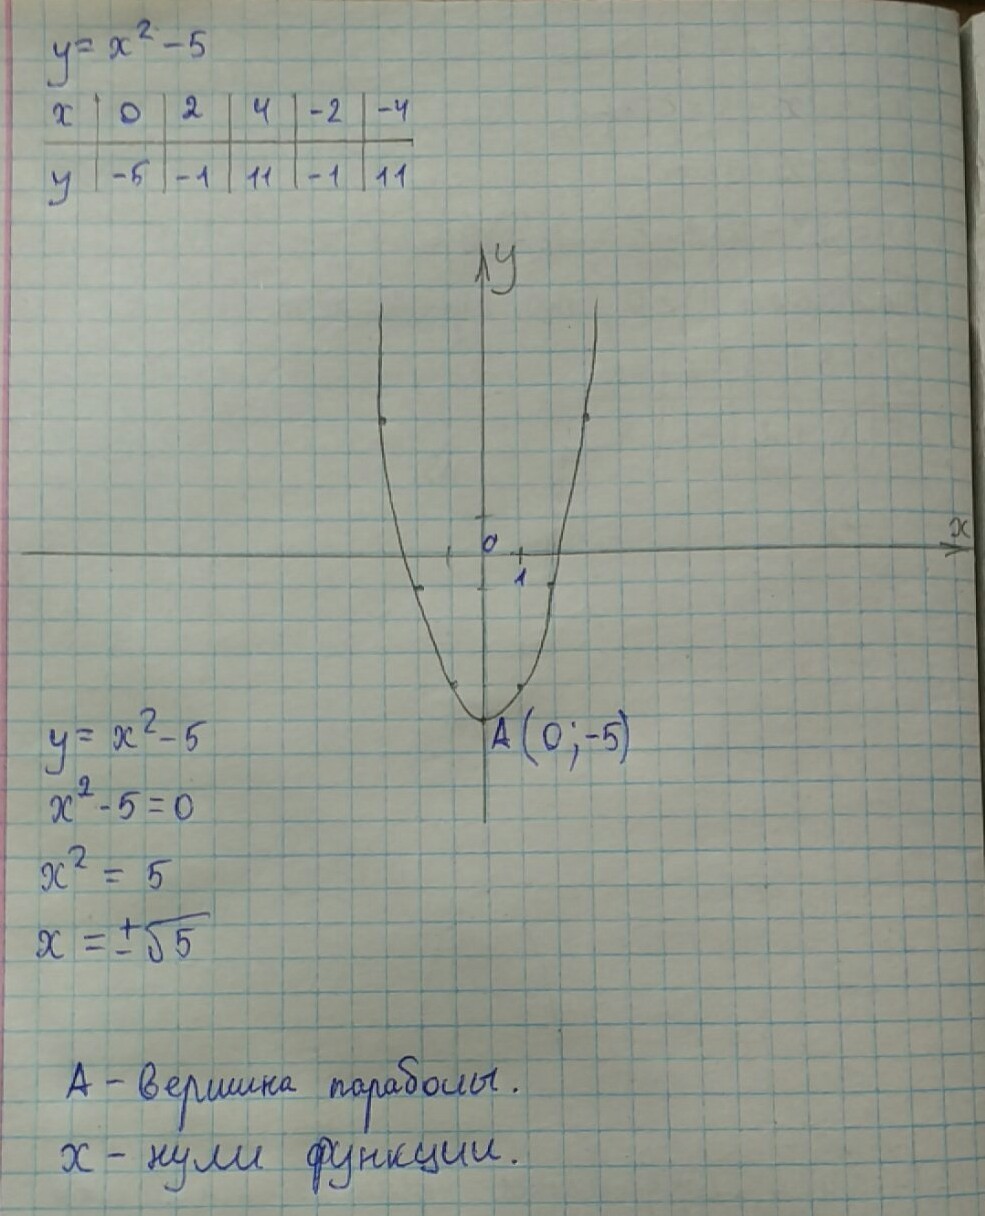 y = x² - 5
x | 0 | 2 | 4 | -2 | -4
y | -5 | -1 | 11 | -1 | 11
y
0
x
1
A (0; -5)
y = x² - 5
x² - 5 = 0
x² = 5
x = ±√5
A - вершина параболы.
x - нули функции.